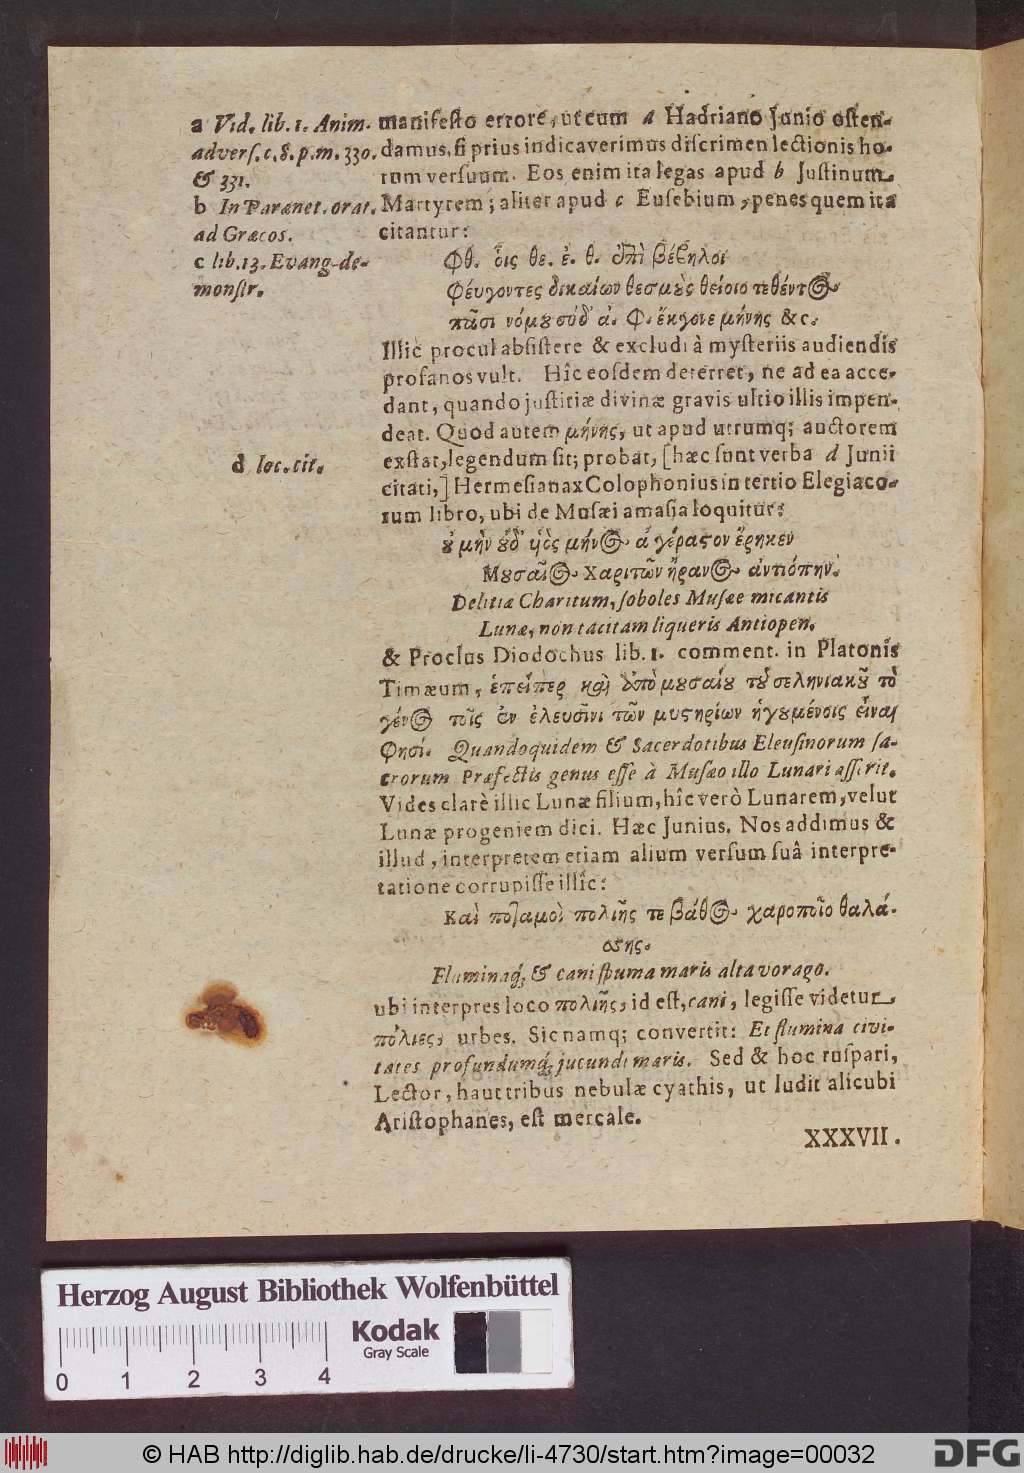 a Vid. lib. 1. Anim-
adverſ. c. 8. p. m. 330.
& 331.
b In Parænet. orat.
ad Græcos.
c lib. 13. Evang. de-
monſtr.
d loc. cit.
manifeſto errore, ut cum a Hadriano Junio oſten-
damus, ſi prius indicaverimus diſcrimen lectionis ho-
rum verſuum. Eos enim ita legas apud b Juſtinum
Martyrem; aliter apud c Euſebium, penes quem ita
citantur:
Φθ. οἷς θε. ἐ. θ. ἐπὶ βέβηλοι
Φέυγοντες δικαίων θεσμοὺς θείοιο τεθέντος
πᾶσι νόμου σὺ δ' ἀ. Φ. ἔκγονε μήνης &c.
Illîc procul abſiſtere & excludi à myſteriis audiendis
profanos vult. Hîc eosdem deterret, ne ad ea acce-
dant, quando juſtitiæ divinæ gravis ultio illis impen-
deat. Quod autem μήνης, ut apud utrumq; auctorem
exſtat, legendum ſit; probat, [hæc ſunt verba d Junii
citati,] Hermeſianax Colophonius in tertio Elegiaco-
rum libro, ubi de Muſæi amaſia loquitur:
οὐ μὴν οὐδ' υἱὸς μήνος ἀγέραστον ἔθηκεν
Μουσαῖος Χαριτῶν ἤρανος ἀντιόπην.
Delitiæ Charitum, ſoboles Muſæe micantis
Lunæ, non tacitam liqueris Antiopen.
& Proclus Diodochus lib. 1. comment. in Platonis
Timæum, ἐπείπερ καὶ ἀπὸ μουσαίου τοῦ σεληνιακοῦ τὸ
γένος τοῖς ἐν ἐλευσῖνι τῶν μυστηρίων ἡγουμένοις εἶναι
φησί. Quandoquidem & Sacerdotibus Eleuſinorum ſa-
crorum Præfectis genus eſſe à Muſæo illo Lunari aſſerit.
Vides clarè illic Lunæ filium, hîc verò Lunarem, velut
Lunæ progeniem dici. Hæc Junius. Nos addimus &
illud, interpretem etiam alium verſum ſuâ interpre-
tatione corrupiſſe illîc:
Καὶ ποταμοὶ πολιῆς τε βάθος χαροποῖο θαλά-
σσης.
Fluminaq́; & cani ſpuma maris alta vorago.
ubi interpres loco πολιῆς, id eſt, cani, legiſſe videtur
πόλιες, urbes. Sic namq; convertit: Et flumina civi-
tates profundumq́; jucundi maris. Sed & hoc ruſpari,
Lector, haut tribus nebulæ cyathis, ut ludit alicubi
Ariſtophanes, eſt mercale.
XXXVII.
Herzog August Bibliothek Wolfenbüttel
Kodak
Gray Scale
0 1 2 3 4
© HAB http://diglib.hab.de/drucke/li-4730/start.htm?image=00032
DFG